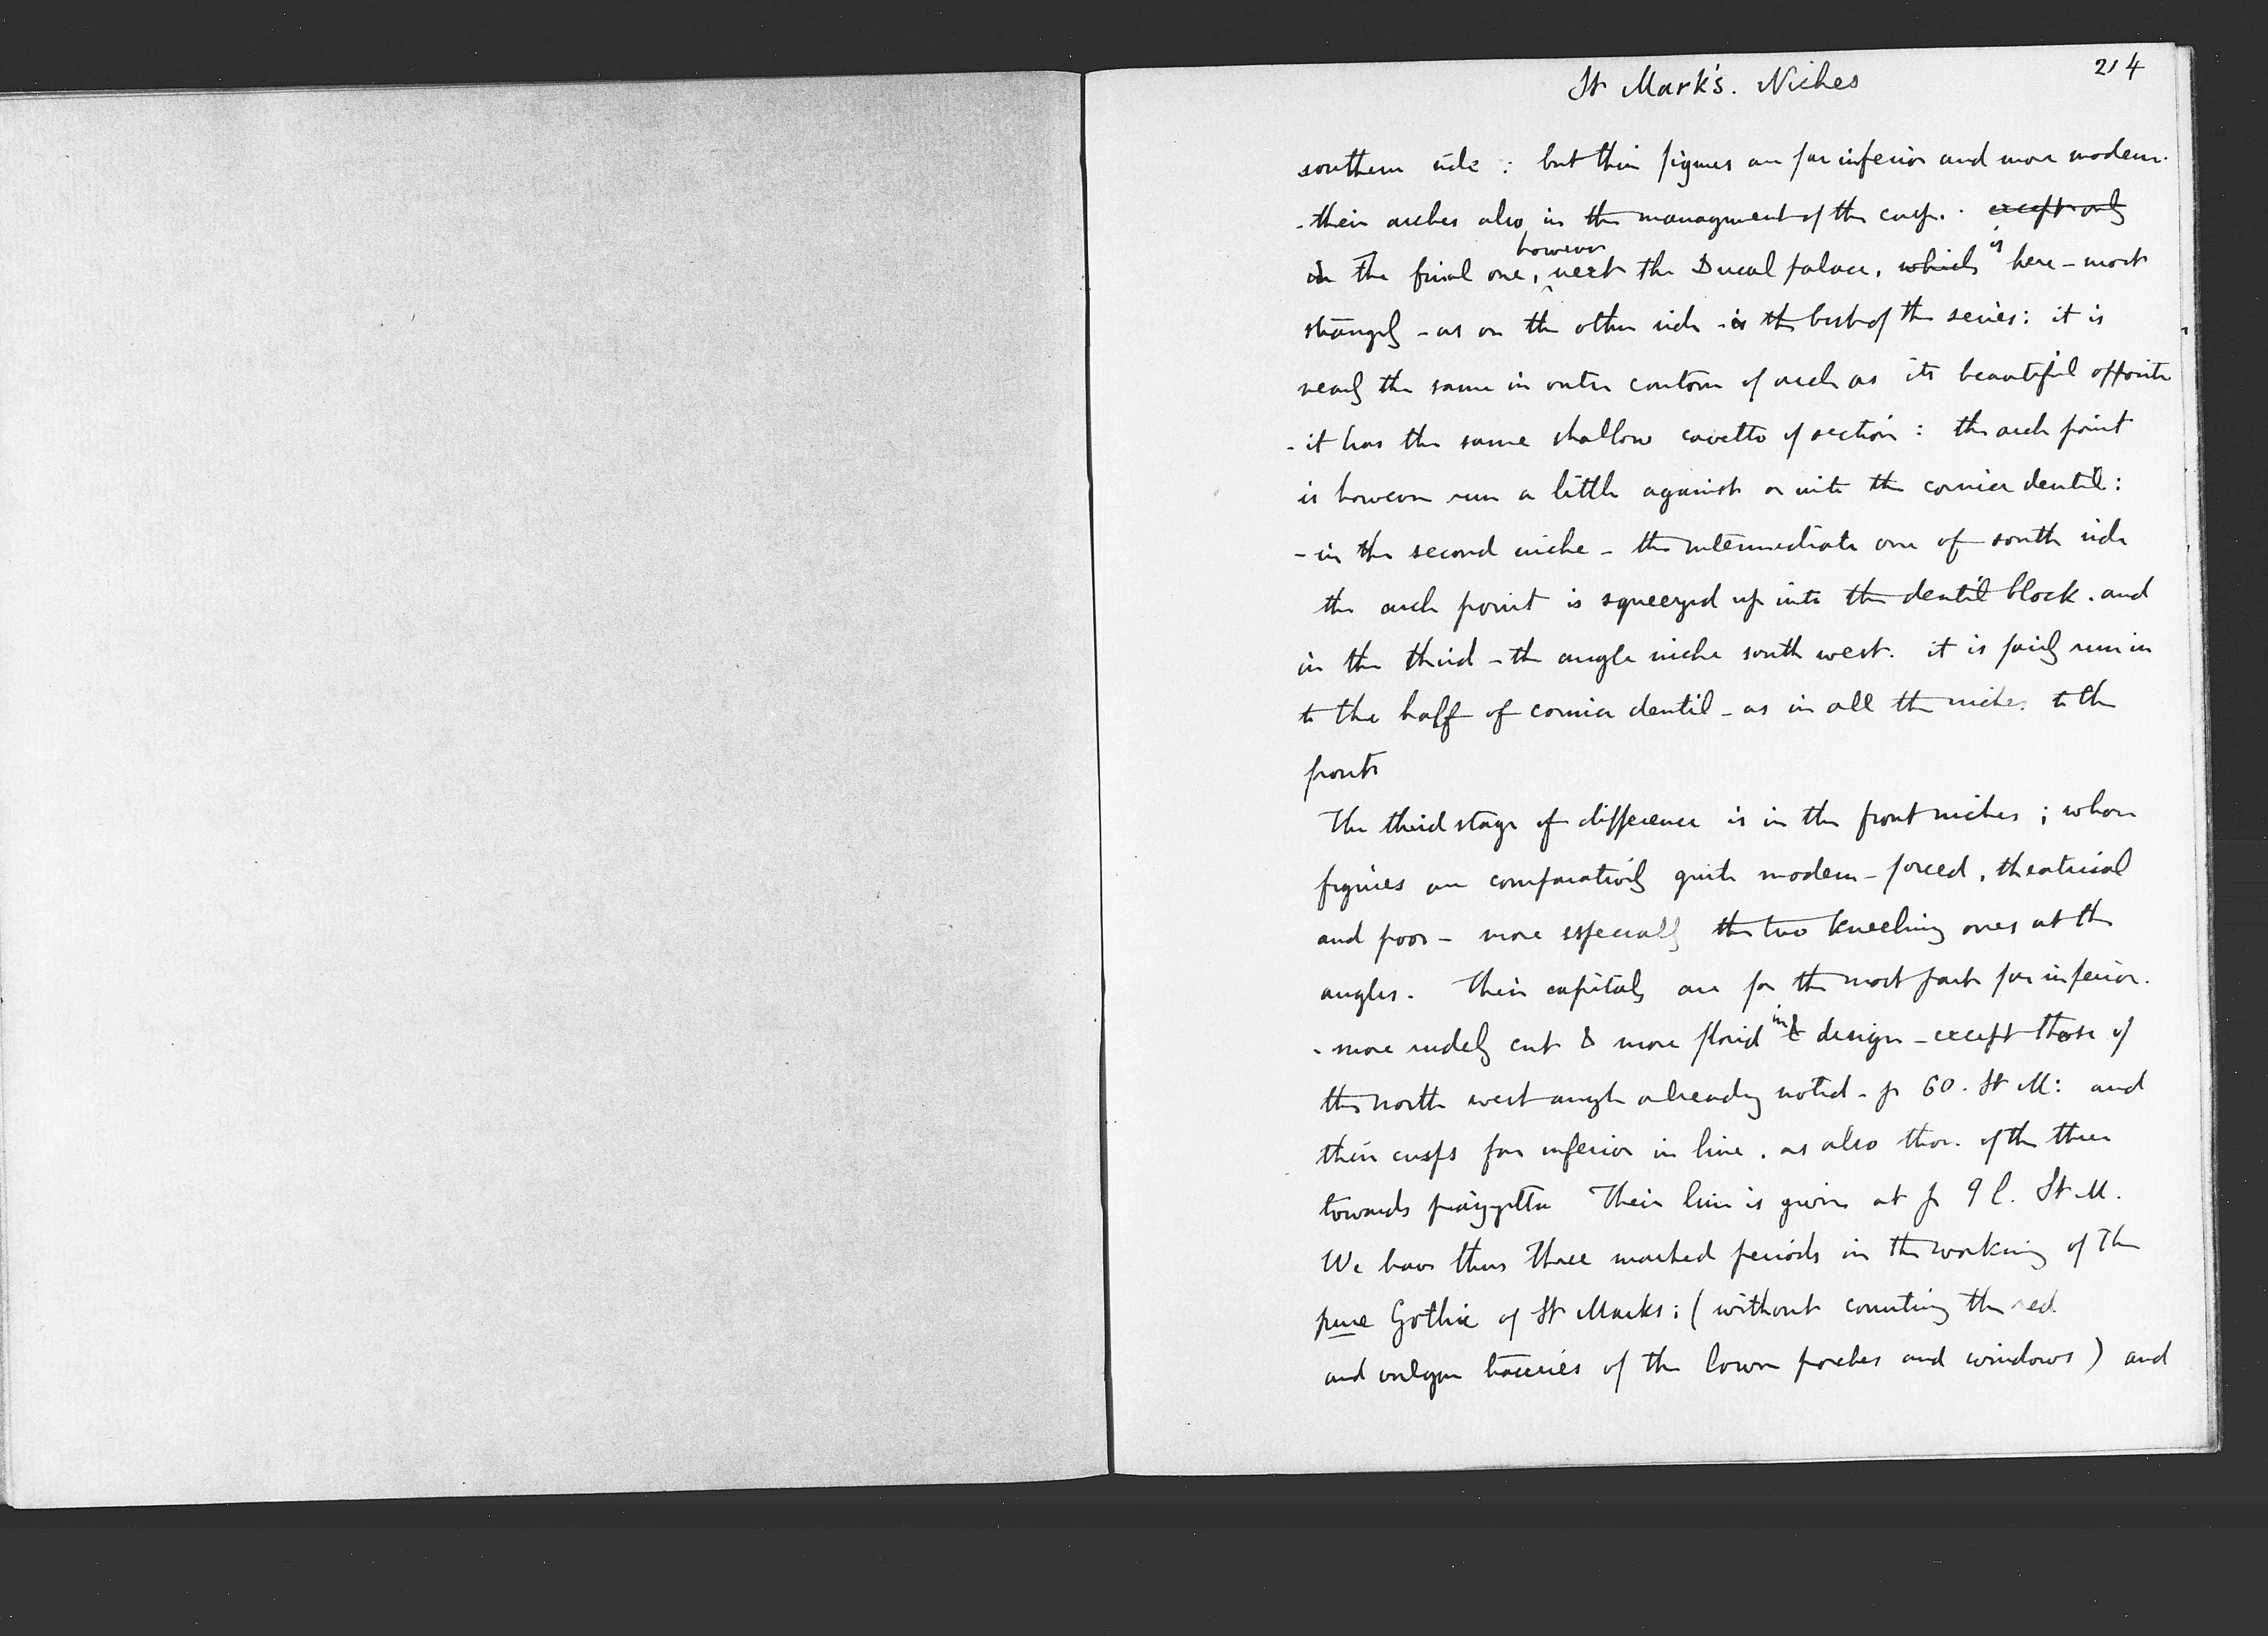 214
St Mark's. Niches
southern side : but their figures are far inferior and more modern.
- their arches also, in the managment of the cusp. . except only
in The final one, however next the Ducal palace, which is here - most
strangely - as on the other side - is the best of the series: it is
nearly the same in outer contour of arch as its beautiful opposite
- it has the same shallow cavetto of section : the arch point
is however run a little against or into the cornice dentil :
- in the second niche - the intermediate one of south side
the arch point is squeezed up into the dentil block . and
in the third - the angle niche south west. it is fairly run in
to the half of cornice dentil - as in all the niches to the
front
The third stage of difference is in the front niches ; whose
figures are comparatively quite modern - forced, theatrical
and poor - more especially the two kneeling ones at the
angles. Their capitals are for the most part far inferior.
- more rudely cut & more florid in design - except those of
the north west angle already noted - p 60. St M: and
their cusps far inferior in line . as also those of the three
towards piazzetta Their line is given at p 9 l. St M.
We have thus three marked periods in the working of the
pure Gothic of St Marks : ( without counting the red
and vulgar traceries of the lower porches and windows ) and